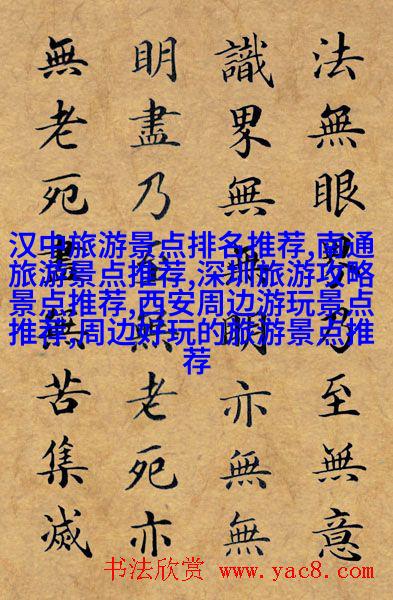 法無眼界乃至無意
識界無無明亦無無
明盡乃至無老死亦
無老死盡無苦集滅
汉中旅游景点排名推荐,南通
旅游景点推荐,深圳旅游攻略
景点推荐,西安周边游玩景点
推荐,周边好玩的旅游景点推
荐
书法欣赏 www.yac8.com